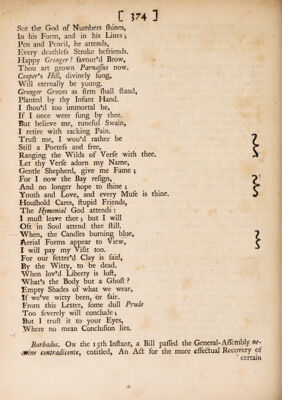 [ 374 ]
See the God of Numbers ſhines,
In his Form, and in his Lines;
Pen and Pencil, he attends,
Every deathleſs Stroke befriends.
Happy Gronger! favour'd Brow,
Thou art grown Parnaſſus now.
Cooper's Hill, divinely ſung,
Will eternally be young.
Gronger Groves as firm ſhall ſtand,
Planted by thy Infant Hand.
I ſhou'd too immortal be,
If I once were ſung by thee.
But believe me, tuneful Swain,
I retire with racking Pain.
Truſt me, I wou'd rather be
Still a Poeteſs and free,
Ranging the Wilds of Verſe with thee.
Let thy Verſe adorn my Name,
Gentle Shepherd, give me Fame;
For I now the Bay reſign,
And no longer hope to ſhine;
Youth and Love, and every Muſe is thine.
Houſhold Cares, ſtupid Friends,
The Hymenial God attends:
I muſt leave thee; but I will
Oft in Soul attend thee ſtill.
When, the Candles burning blue,
Aerial Forms appear to View,
I will pay my Viſit too.
For our fetter'd Clay is ſaid,
By the Witty, to be dead.
When lov'd Liberty is loſt,
What's the Body but a Ghoſt?
Empty Shades of what we wear,
If we've witty been, or fair.
From this Letter, ſome dull Prude
Too ſeverely will conclude;
But I truſt it to your Eyes,
Where no mean Concluſion lies.
Barbados. On the 13th Inſtant, a Bill paſſed the General-Aſſembly ne-
mine contradicente, entitled, An Act for the more effectual Recovery of
certain